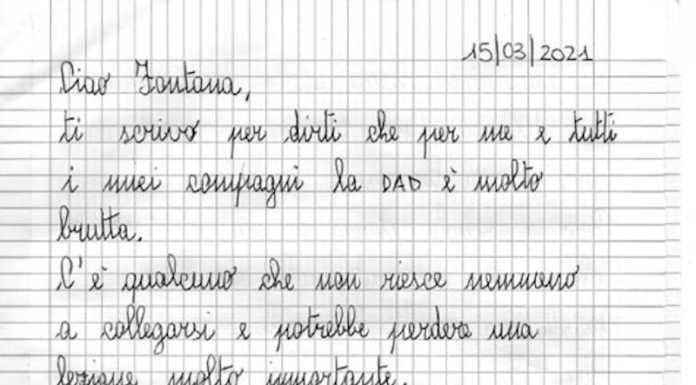 15/03/2021
Ciao Fontana,
ti scrivo per dirti che per me e tutti
i miei compagni la DAD è molto
brutta.
C'è qualcuno che non riesce nemmeno
a collegarsi e potrebbe perdere una
lezione molto importante.